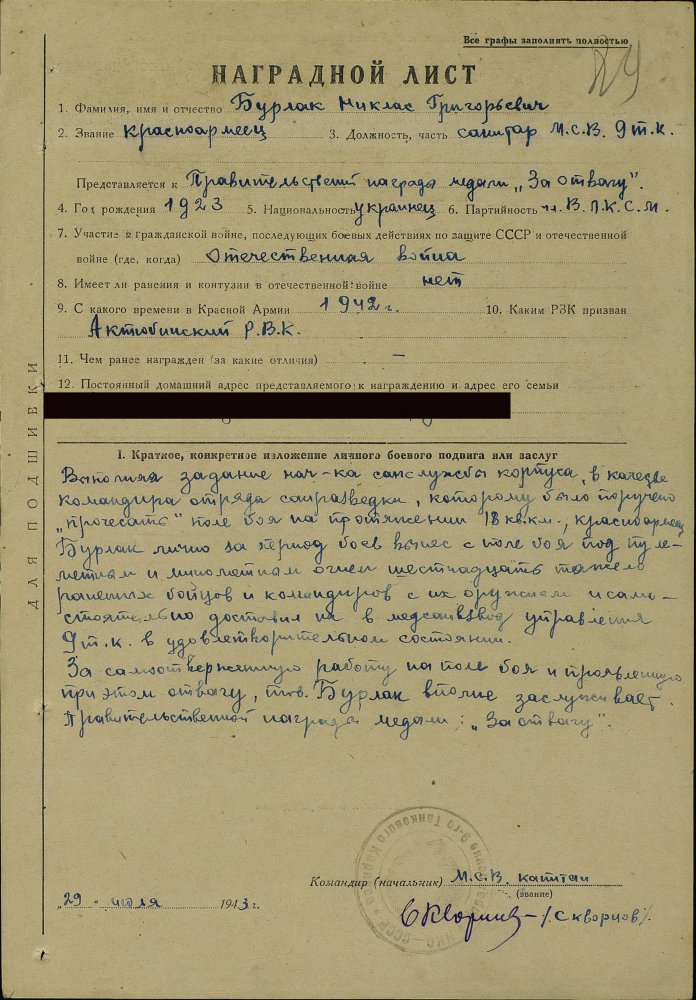 Все графы заполнять полностью
24
НАГРАДНОЙ ЛИСТ
1. Фамилия, имя и отчество Бурлак Никлас Григорьевич
2. Звание красноармеец 3. Должность, часть санитар М.С.В. 9 т.к.
Представляется к Правительственной награде медали „За отвагу".
4. Год рождения 1923 5. Национальность украинец 6. Партийность чл. В.Л.К.С.М.
7. Участие в гражданской войне, последующих боевых действиях по защите СССР и отечественной
войне (где, когда) Отечественная война
8. Имеет ли ранения и контузии в отечественной войне нет
9. С какого времени в Красной Армии 1942 г. 10. Каким РВК призван
Актюбинский Р.В.К.
11. Чем ранее награжден (за какие отличия) —
12. Постоянный домашний адрес представляемого к награждению и адрес его семьи
ДЛЯ ПОДШИВКИ
I. Краткое, конкретное изложение личного боевого подвига или заслуг
Выполняя задание нач-ка санслужбы корпуса, в качестве
командира отряда санразведки, которому было поручено
„прочесать" поле боя на протяжении 18 кв.км., красноармеец
Бурлак лично за период боев вынес с поле боя под пуле-
метным и минометным огнем шестнадцать тяжело
раненых бойцов и командиров с их оружием и само-
стоятельно доставил их в медсанвзвод управления
9 т.к. в удовлетворительном состоянии.
За самоотверженную работу на поле боя и проявленную
при этом отвагу, тов. Бурлак вполне заслуживает
Правительственной награды медали: „За отвагу".
Командир (начальник) М.С.В. капитан
(звание)
„29" июля 1943 г.
Скворцов - /Скворцов/.
9-го Танкового
НКО - СССР